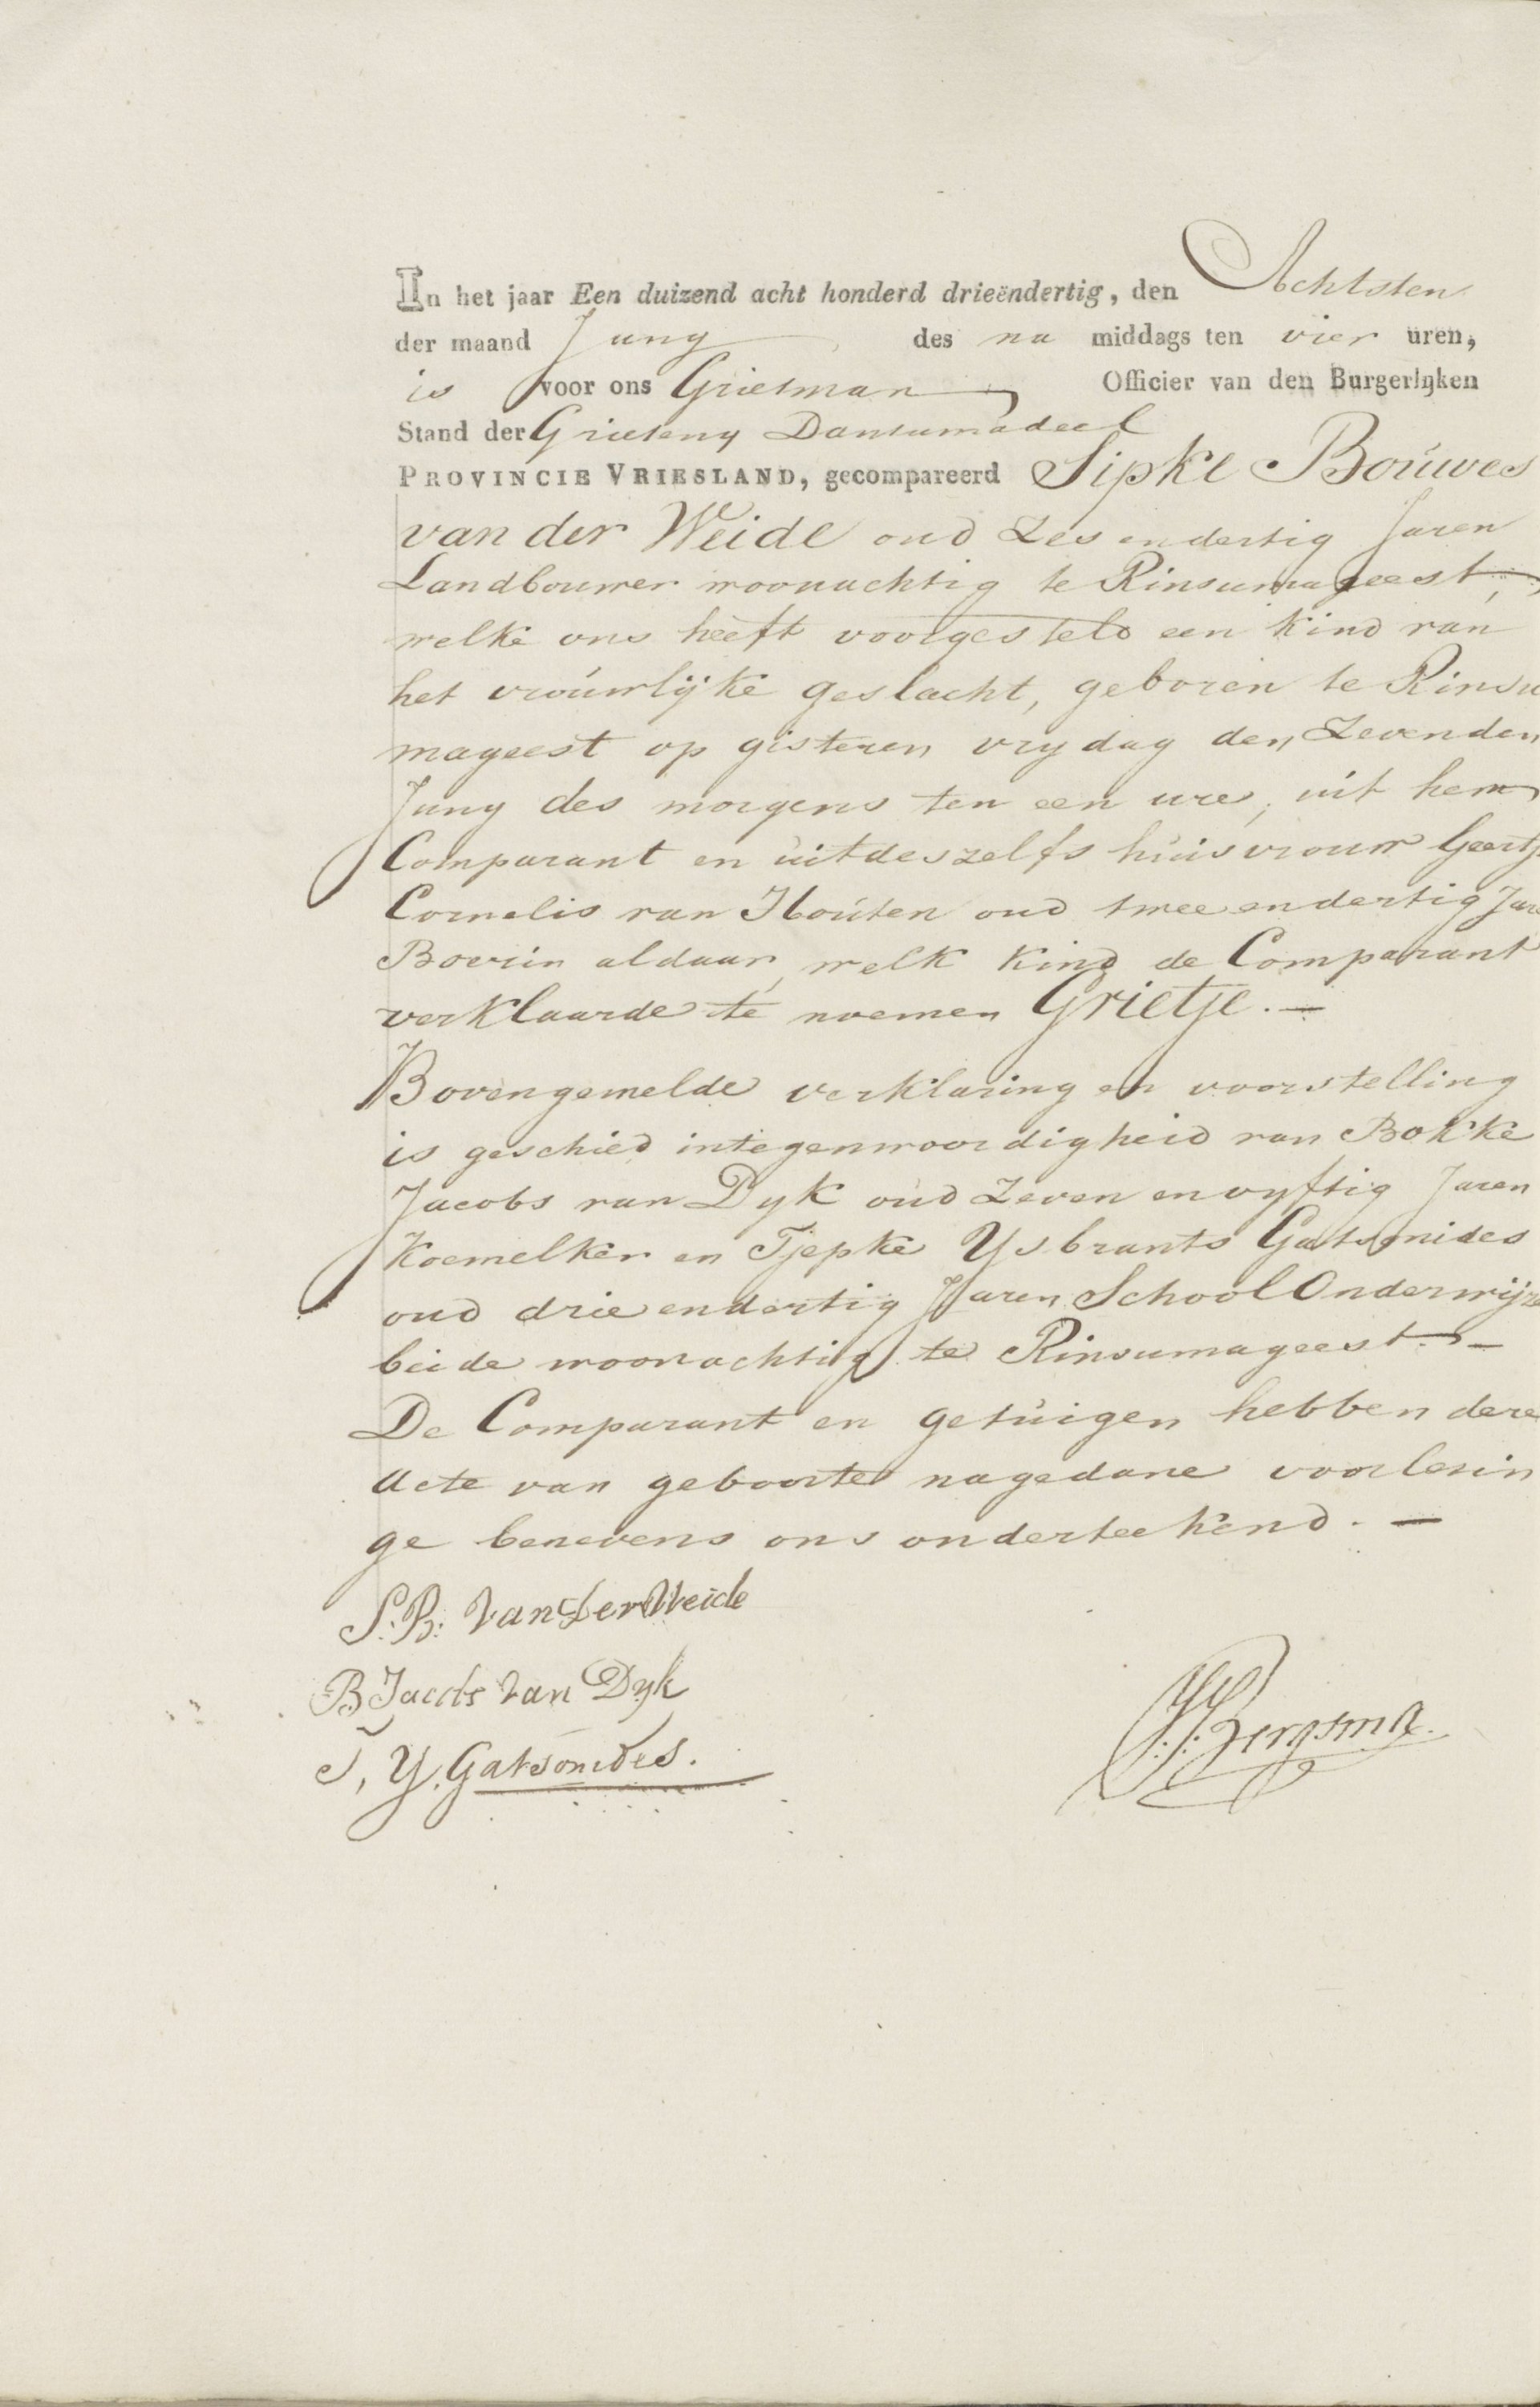 In het jaar Een duizend acht honderd drieëndertig, den Achtsten
der maand Juny des na middags ten vier uren,
is voor ons Grietman Officier van den Burgerlyken
Stand der Grieteny Dantumadeel
PROVINCIE VRIESLAND, gecompareerd Sipke Bouwes
van der Weide oud Zes endertig Jaren
Landbouwer woonachtig te Rinsumageest,
welke ons heeft voorgesteld een kind van
het vrouwlijke geslacht, geboren te Rinsu
mageest op gisteren vrydag den Zevenden
Juny des morgens ten een ure, uit hem
Comparant en uitdeszelfs huisvrouw Geertje
Cornelis van Houten oud twee endertig Jaren
Boerin aldaar, welk kind de Comparant
verklaarde te noemen Grietje. —
Bovengemelde verklaring en voorstelling
is geschied integenwoordigheid van Bokke
Jacobs van Dyk oud Zeven en vyftig Jaren
Koemelker en Tjepke Ysbrants Gatsonides
oud drie endertig Jaren School Onderwijze
beide woonachtig te Rinsumageest. —
De Comparant en getuigen hebben deze
Acte van geboorte nagedane voorlezin
ge benevens ons onderteekend. —
S. B. van der Weide
B Jacobs van Dyk
T. Y. Gatsonides.